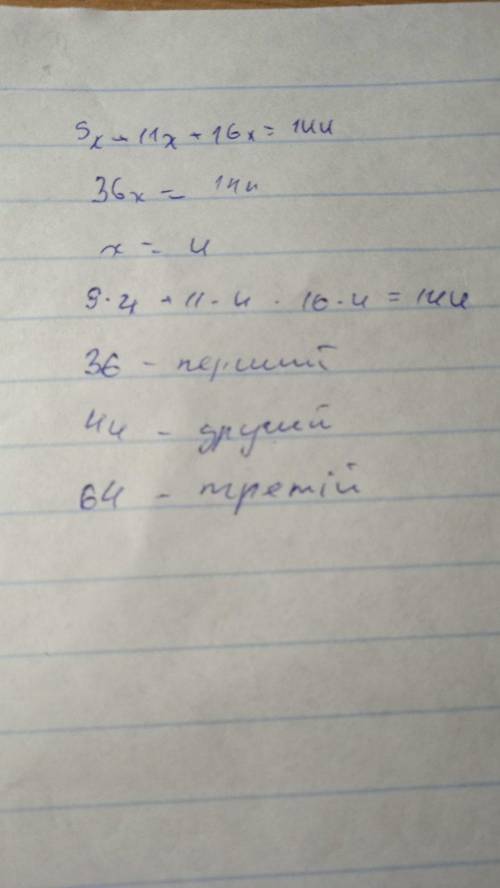 9x + 11x + 16x = 144
36x = 144
x = 4
9·4 + 11·4 · 16·4 = 144
36 - перший
44 - другий
64 - третій